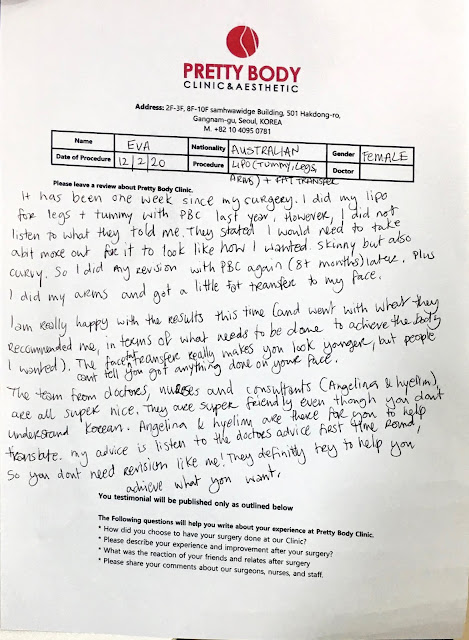 PRETTY BODY
CLINIC&AESTHETIC
Address: 2F-3F, 8F-10F samhwawidge Building, 501 Hakdong-ro,
Gangnam-gu, Seoul, KOREA
M. +82 10 4095 0781
Name EVA Nationality AUSTRALIAN Gender FEMALE
Date of Procedure 12/2/20 Procedure LIPO (TUMMY, LEGS, ARMS) + FAT TRANSFER Doctor
Please leave a review about Pretty Body Clinic.
It has been one week since my surgery. I did my lipo
for legs + tummy with PBC last year. However, I did not
listen to what they told me. They stated I would need to take
abit more out for it to look like how I wanted. skinny but also
curvy. So I did my revision with PBC again (8+ months) later. Plus
I did my arms and got a little fat transfer to my face.
I am really happy with the results this time (and went with what they
recommended me, in terms of what needs to be done to achieve the body
I wanted). The face fat transfer really makes you look younger, but people
cant tell you got anything done on your face.
The team from doctors, nurses and consultants (Angelina & hyelim),
are all super nice. They are super friendly even though you dont
understand Korean. Angelina & hyelim are there for you to help
translate. my advice is listen to the doctors advice first time round,
So you dont need revision like me! They definitly try to help you
achieve what you want.
You testimonial will be published only as outlined below
The Following questions will help you write about your experience at Pretty Body Clinic.
* How did you choose to have your surgery done at our Clinic?
* Please describe your experience and improvement after your surgery?
* What was the reaction of your friends and relates after surgery
* Please share your comments about our surgeons, nurses, and staff.